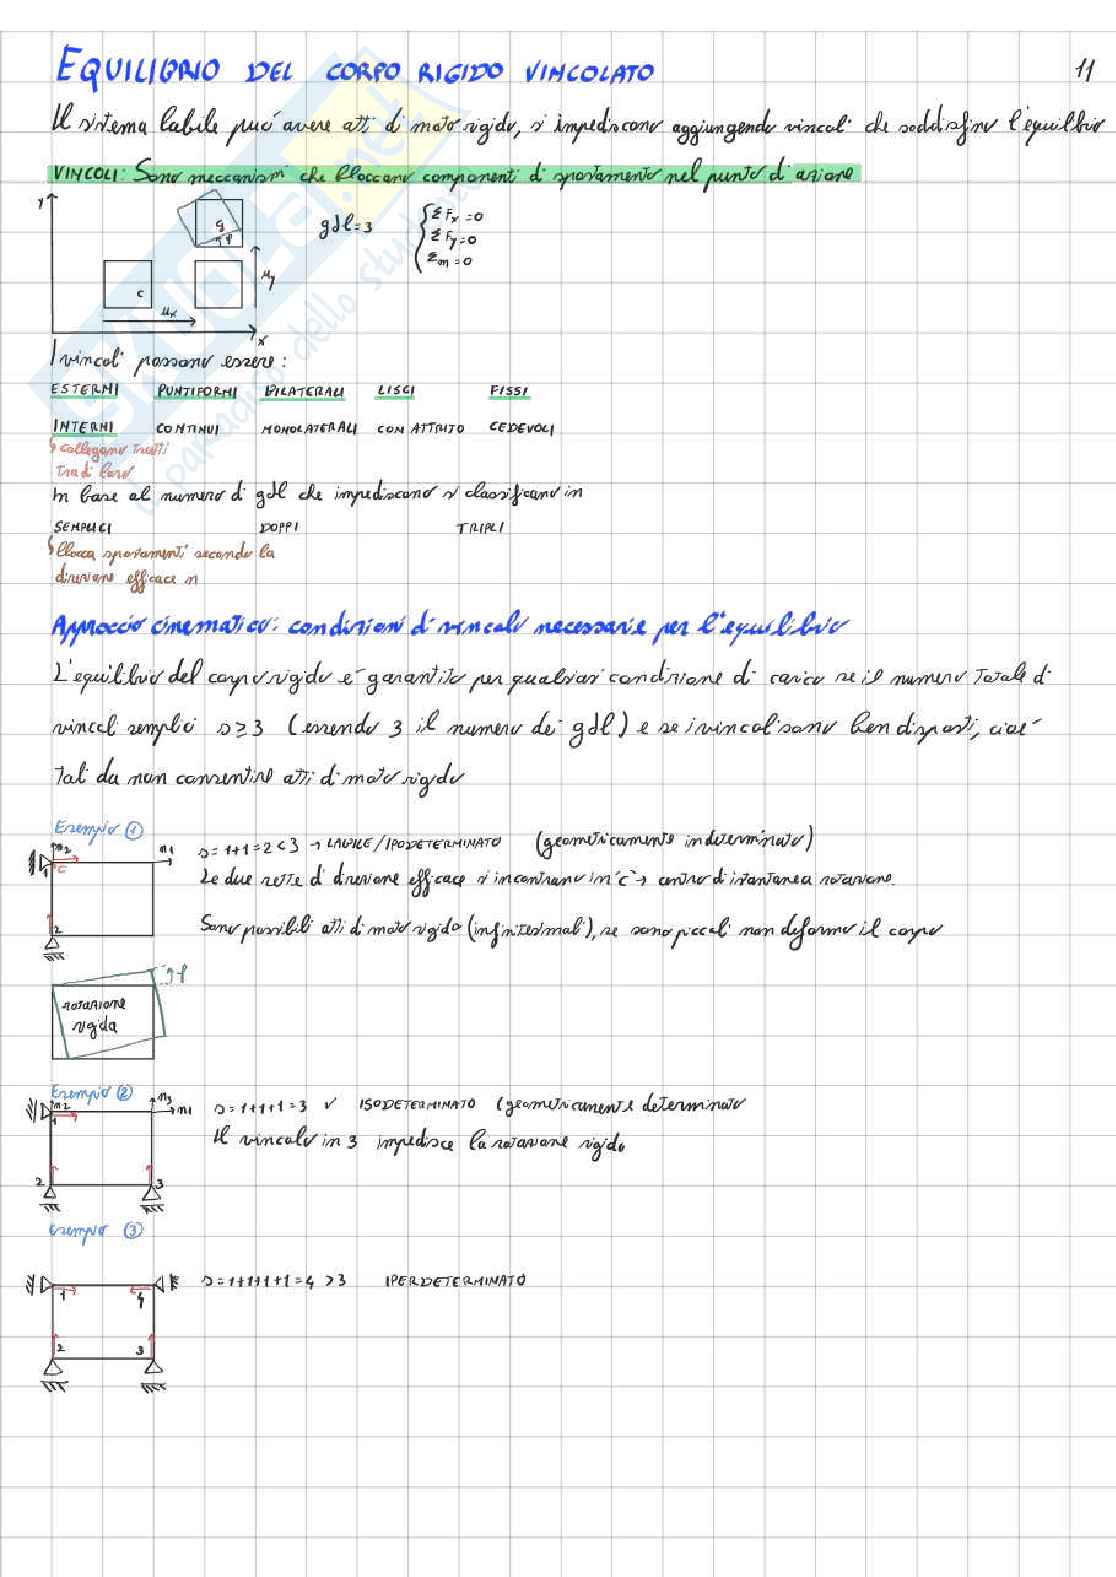 EQUILIBRIO DEL CORPO RIGIDO VINCOLATO
11
Il sistema labile puó avere atti di moto rigido, si impediscono aggiungendo vincoli che soddisfino l'equilibrio
VINCOLI: Sono meccanismi che bloccano componenti di spostamento nel punto d'azione
y
G
φ
gdl=3
ΣFx=0
ΣFy=0
Σm=0
C
ux
uy
x
I vincoli possono essere:
ESTERNI PUNTIFORMI BILATERALI LISCI FISSI
INTERNI CONTINUI MONOLATERALI CON ATTRITO CEDEVOLI
↳ collegano tratti
tra di loro
In base al numero di gdl che impediscono si classificano in
SEMPLICI DOPPI TRIPLI
↳ blocca spostamenti secondo la
direzione efficace n
Approccio cinematico: condizioni di vincolo necessarie per l'equilibrio
L'equilibrio del corpo rigido é garantito per qualsiasi condizione di carico se il numero totale di
vincoli semplici s≥3 (essendo 3 il numero dei gdl) e se i vincoli sono ben disposti, cioé
tali da non consentire atti di moto rigido
Esempio ①
n2
n1
1
C
2
s=1+1=2<3 → LABILE/IPODETERMINATO (geometricamente indeterminato)
Le due rette di direzione efficace si incontrano in "C" → centro d'istantanea rotazione.
Sono possibili atti di moto rigido (infinitesimali), se sono piccoli non deformo il corpo
φ
rotazione
rigida
Esempio ②
n2
n3
n1
1
2
3
s=1+1+1=3 ✓ ISODETERMINATO (geometricamente determinato
Il vincolo in 3 impedisce la rotazione rigida
esempio ③
1
4
2
3
s=1+1+1+1=4 >3 IPERDETERMINATO